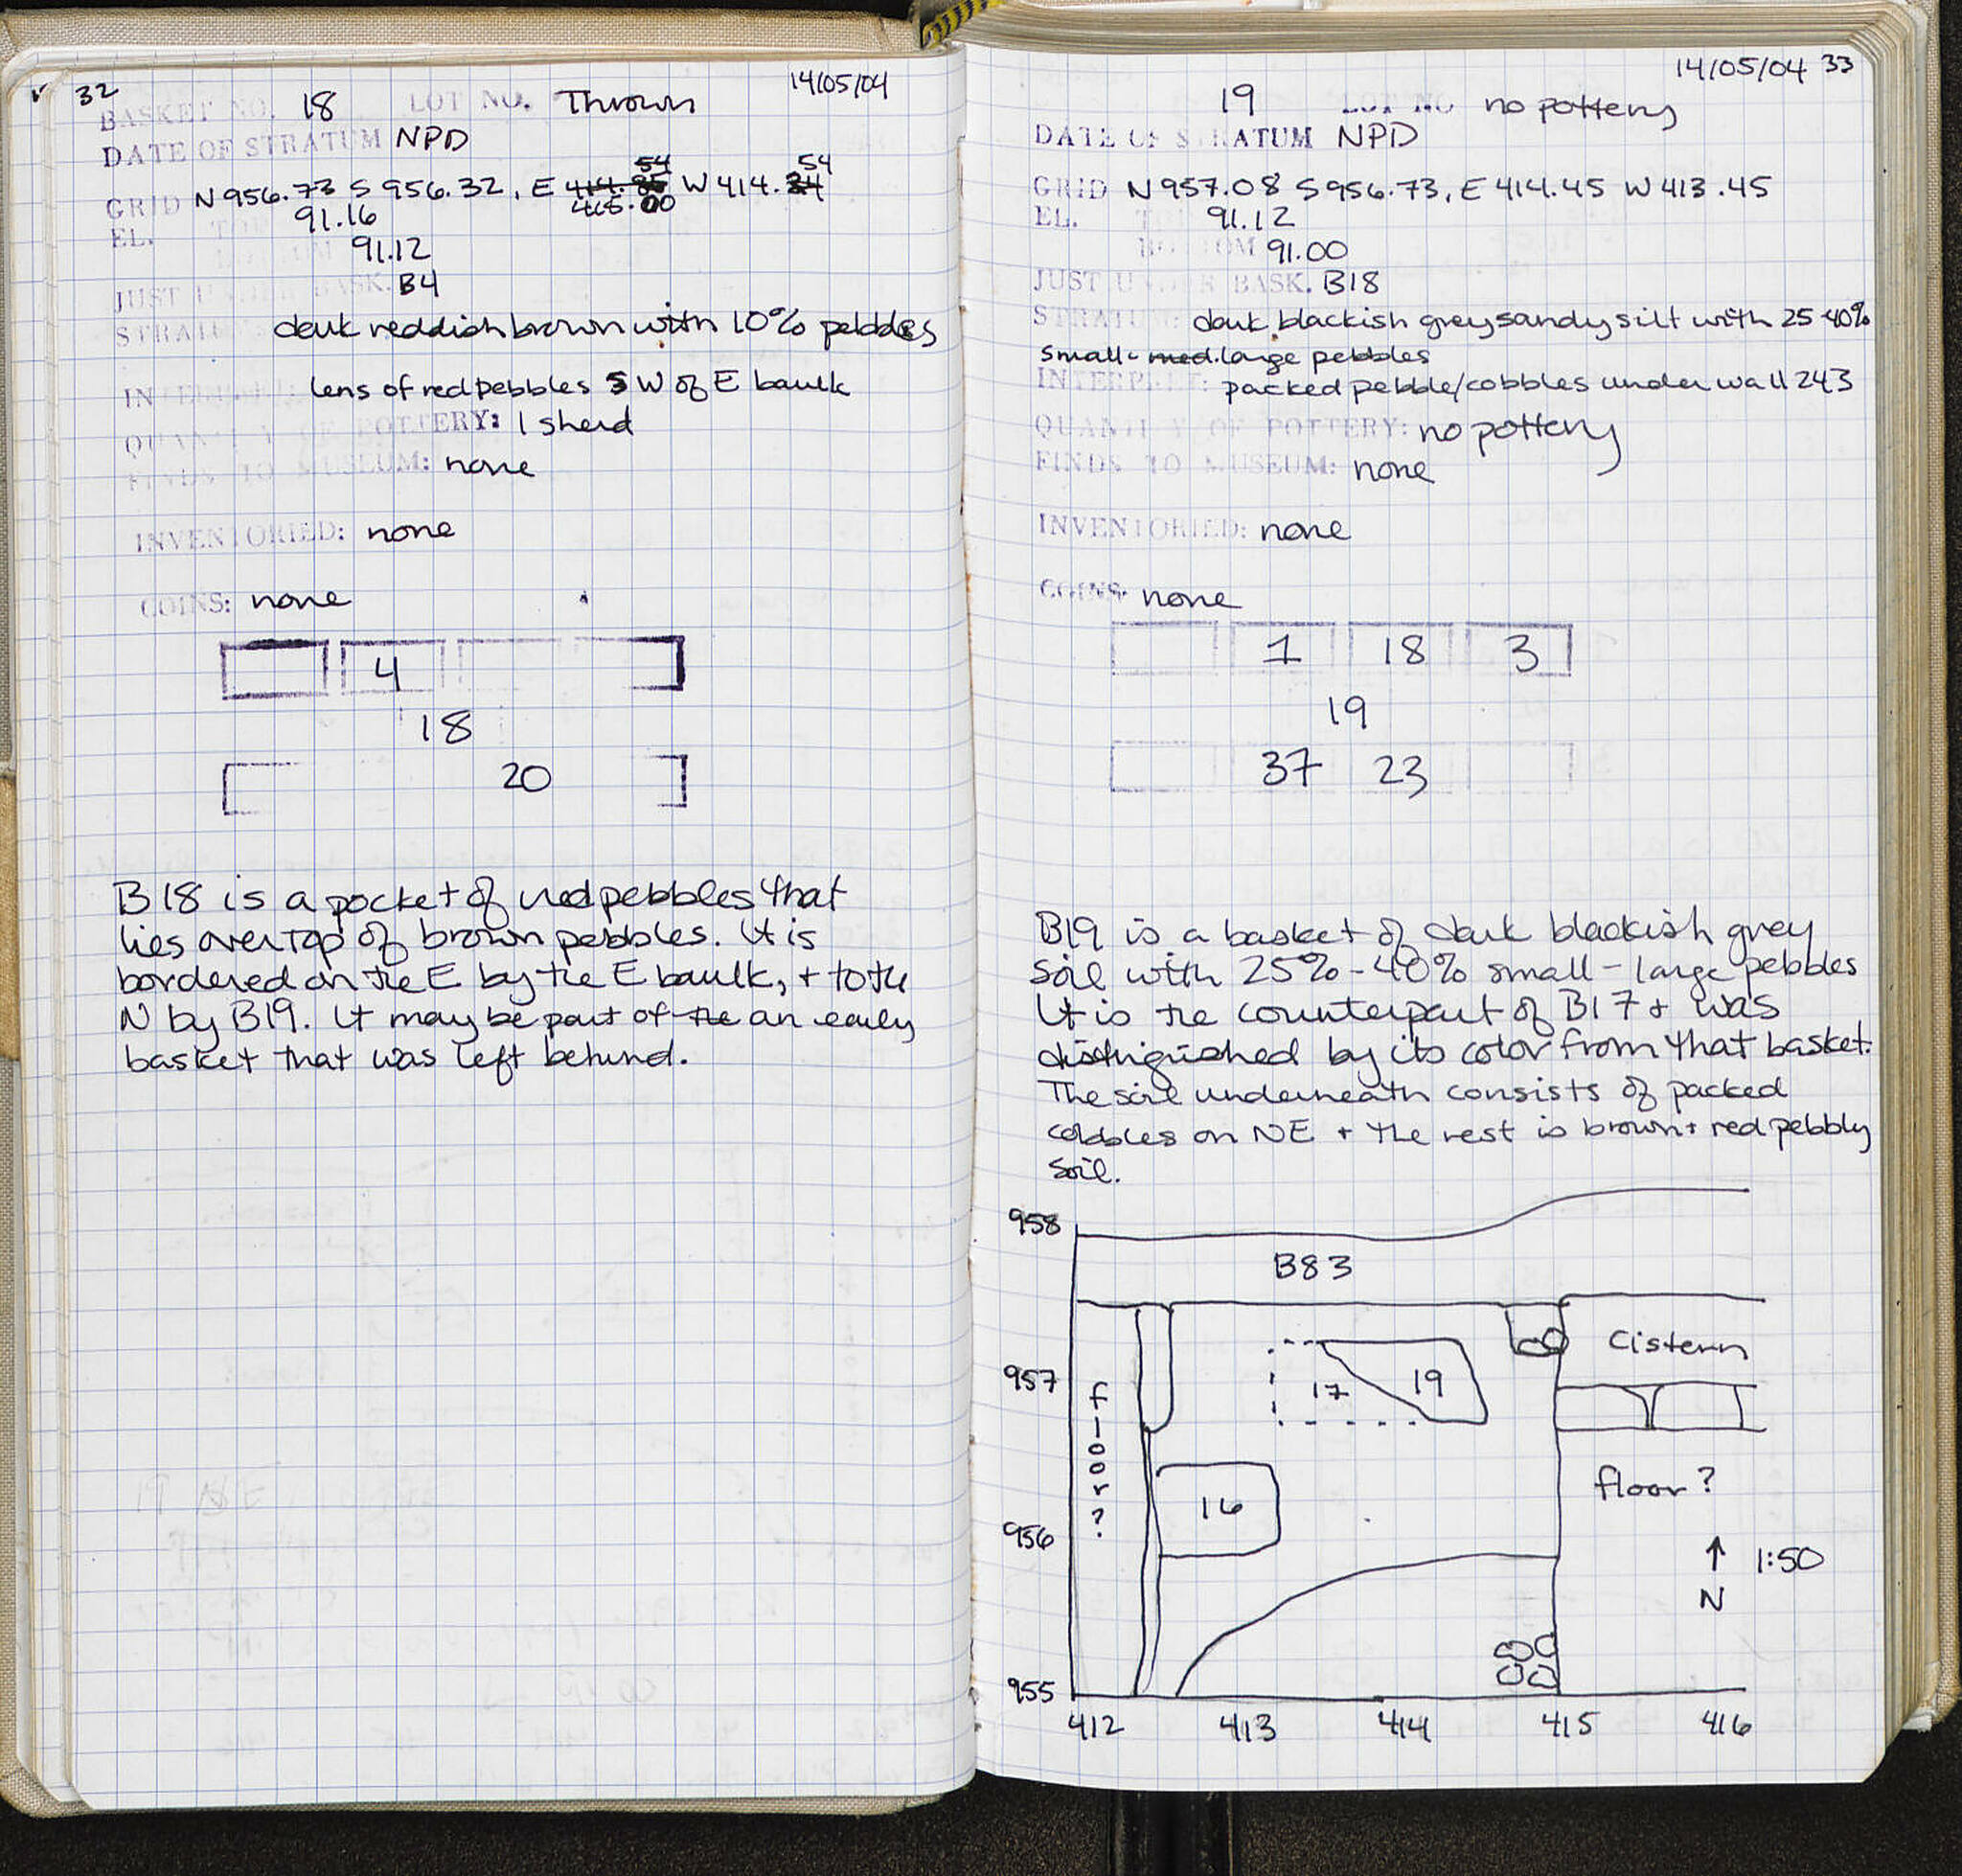 32
14/05/04
BASKET NO. 18 LOT NO. Thrown
DATE OF STRATUM NPD
54 54
GRID N 956.73 S 956.32, E 414. W 414.
EL. 91.16 465.00
91.12
JUST UNDER BASK. B4
STRATUM: dark reddish brown with 10% pebbles
INTERPRET: lens of red pebbles W of E baulk
QUANTITY OF POTTERY: 1 sherd
FINDS TO MUSEUM: none
INVENTORIED: none
COINS: none
4
18
20
B18 is a pocket of red pebbles that
lies overtop of brown pebbles. It is
bordered on the E by the E baulk, + to the
N by B19. It may be part of the an early
basket that was left behind.
14/05/04 33
19 LOT NO no pottery
DATE OF STRATUM NPD
GRID N 957.08 S 956.73, E 414.45 W 413.45
EL. 91.12
BOTTOM 91.00
JUST UNDER BASK. B18
STRATUM: dark blackish grey sandy silt with 25-40%
small-med.large pebbles
INTERPRET: packed pebble/cobbles under wall 243
QUANTITY OF POTTERY: no pottery
FINDS TO MUSEUM: none
INVENTORIED: none
COINS: none
1 18 3
19
37 23
B19 is a basket of dark blackish grey
soil with 25%-40% small-large pebbles
It is the counterpart of B17 + was
distinguished by its color from that basket.
The soil underneath consists of packed
cobbles on NE + the rest is brown + red pebbly
soil.
958
B83
Cistern
957
17 19
floor?
floor?
16
956
1:50
N
955
412 413 414 415 416